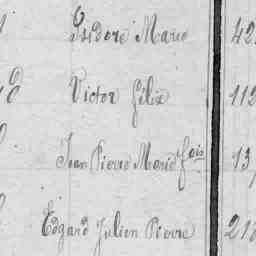 Isidore Marie 42
Victor Félix 112
Jean Pierre Marie fois 13
Edgard Julien Pierre 218